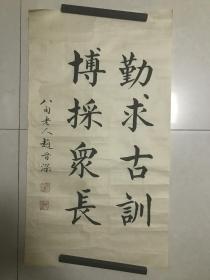 勤求古訓
博採眾長
八旬老人趙晉深